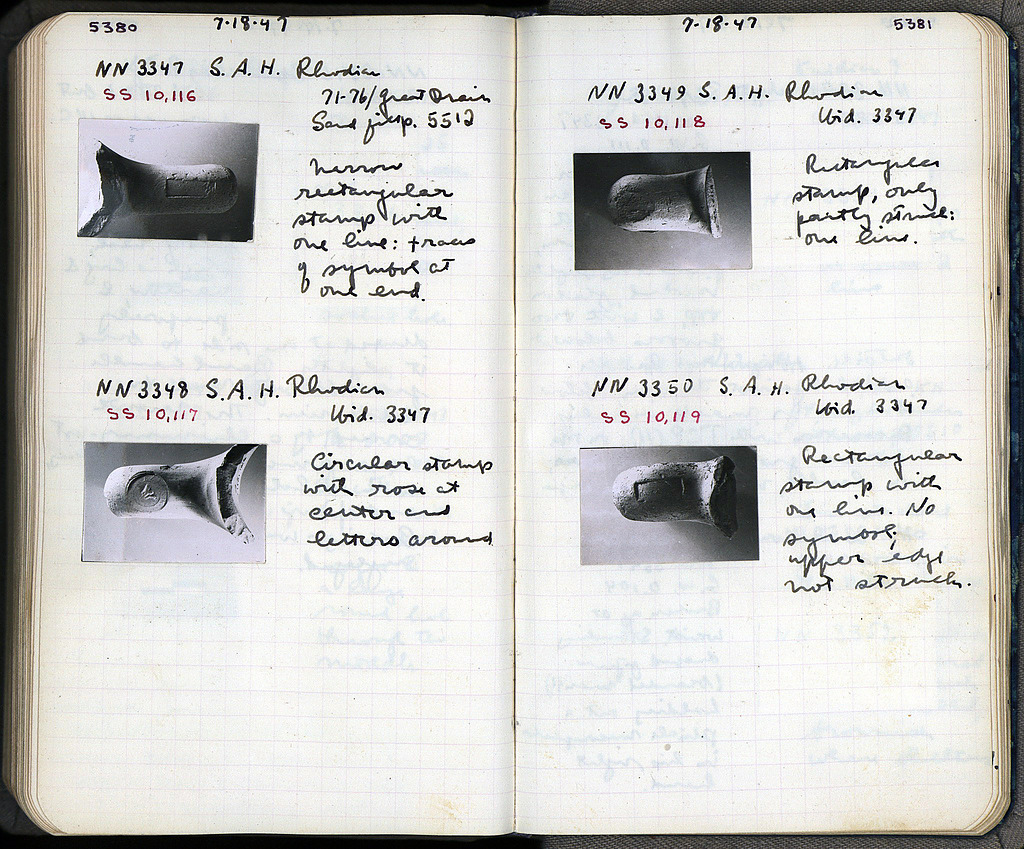 5380
7-18-47
NN 3347 S. A. H. Rhodian
SS 10,116
71-76/Great Drain
Sand fill p. 5512
Narrow
rectangular
stamp with
one line: traces
of symbol at
one end.
NN 3348 S. A. H. Rhodian
SS 10,117
Ibid. 3347
Circular stamp
with rose at
center and
letters around
7-18-47
5381
NN 3349 S. A. H. Rhodian
SS 10,118
Ibid. 3347
Rectangular
stamp, only
partly struck:
one line.
NN 3350 S. A. H. Rhodian
SS 10,119
Ibid. 3347
Rectangular
stamp with
one line. No
symbol;
upper edge
not struck.